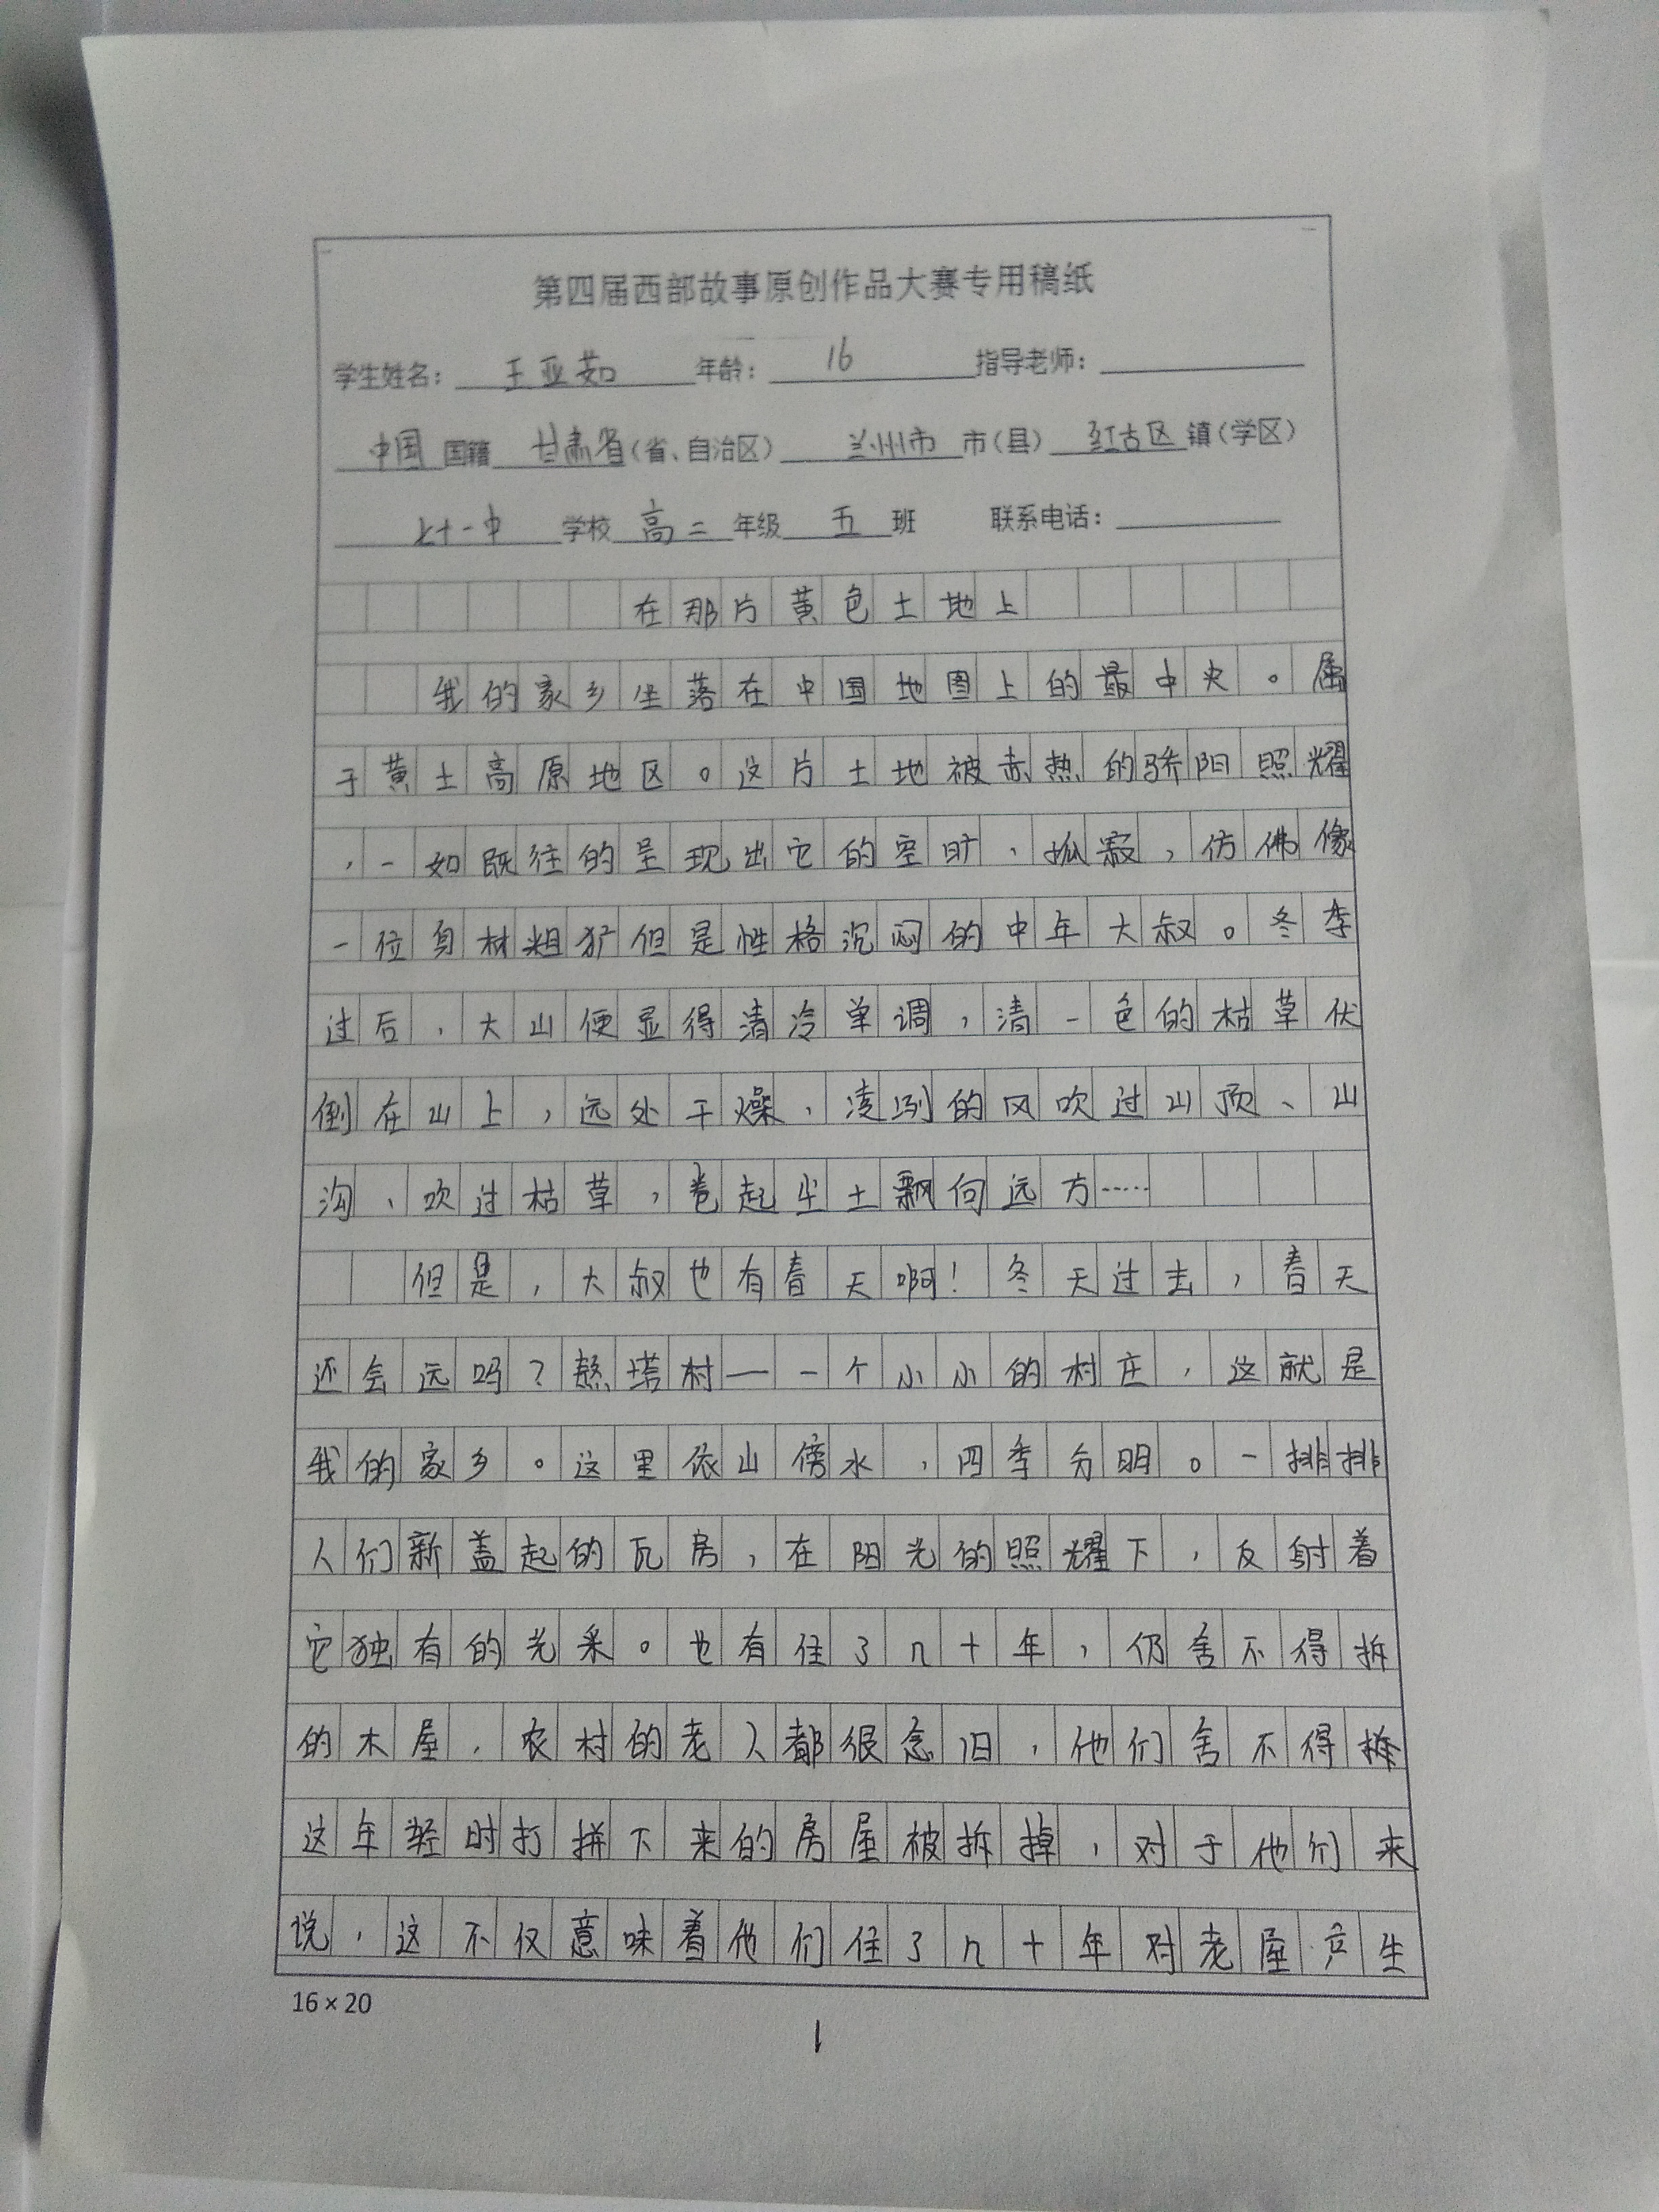 第四届西部故事原创作品大赛专用稿纸
学生姓名：王亚茹 年龄：16 指导老师：
中国 国籍 甘肃省（省、自治区） 兰州市 市（县） 红古区 镇（学区）
七十一中 学校 高二 年级 五 班 联系电话：
在那片黄色土地上
我的家乡坐落在中国地图上的最中央。属
于黄土高原地区。这片土地被赤热的骄阳照耀
，一如既往的呈现出它的空旷、孤寂，仿佛像
一位身材粗犷但是性格沉闷的中年大叔。冬季
过后，大山便显得清冷单调，清一色的枯草伏
倒在山上，远处干燥、凌冽的风吹过山顶、山
沟、吹过枯草，卷起尘土飘向远方……
但是，大叔也有春天啊！冬天过去，春天
还会远吗？熬塔村——一个小小的村庄，这就是
我的家乡。这里依山傍水，四季分明。一排排
人们新盖起的瓦房，在阳光的照耀下，反射着
它独有的光采。也有住了几十年，仍舍不得拆
的木屋，农村的老人都很念旧，他们舍不得
这年轻时打拼下来的房屋被拆掉，对于他们来
说，这不仅意味着他们住了几十年对老屋产生
16×20
1